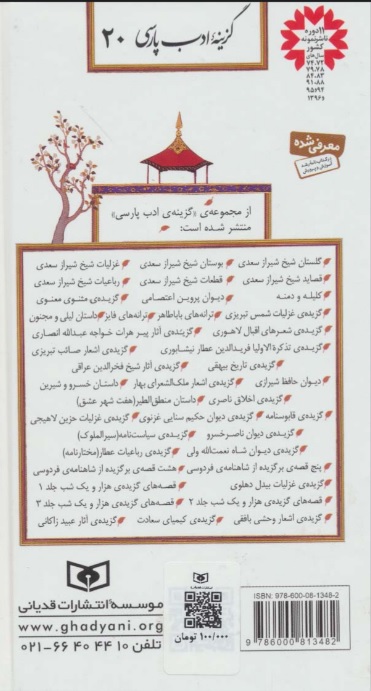 گزینهٔ ادب پارسی ۲۰
۱۱دوره
ناشر نمونه
کشور
سال‌های
۷۲،۷۴
۷۹،۷۸
۸۴،۸۳
۹۱،۸۸
۹۵،۹۴
۱۳۹۶
معرفی شده
از مجموعه‌ی «گزینه‌ی ادب پارسی»
منتشر شده است:
گلستان شیخ شیراز سعدی بوستان شیخ شیراز سعدی غزلیات شیخ شیراز سعدی
قصاید شیخ شیراز سعدی قطعات شیخ شیراز سعدی رباعیات شیخ شیراز سعدی
کلیله و دمنه دیوان پروین اعتصامی گزیده‌ی مثنوی معنوی
گزیده‌ی غزلیات شمس تبریزی ترانه‌های باباطاهر ترانه‌های فایز داستان لیلی و مجنون
گزیده‌ی شعرهای اقبال لاهوری گزیده‌ی آثار پیر هرات خواجه عبدالله انصاری
گزیده‌ی تذکرة‌الاولیا فریدالدین عطار نیشابوری گزیده‌ی اشعار صائب تبریزی
گزیده‌ی تاریخ بیهقی گزیده‌ی آثار شیخ فخرالدین عراقی
دیوان حافظ شیرازی گزیده‌ی اشعار ملک‌الشعرای بهار داستان خسرو و شیرین
گزیده‌ی اخلاق ناصری داستان منطق‌الطیر(هفت شهر عشق)
گزیده‌ی قابوسنامه گزیده‌ی دیوان حکیم سنایی غزنوی گزیده‌ی غزلیات حزین لاهیجی
گزیده‌ی دیوان ناصرخسرو گزیده‌ی سیاست‌نامه(سیرالملوک)
گزیده‌ی دیوان شاه نعمت‌الله ولی گزیده‌ی رباعیات عطار(مختارنامه)
پنج قصه‌ی برگزیده از شاهنامه‌ی فردوسی هشت قصه‌ی برگزیده از شاهنامه‌ی فردوسی
گزیده‌ی غزلیات بیدل دهلوی قصه‌های گزیده‌ی هزار و یک شب جلد ۱
قصه‌های گزیده‌ی هزار و یک شب جلد ۲ قصه‌های گزیده‌ی هزار و یک شب جلد ۳
گزیده‌ی اشعار وحشی بافقی گزیده‌ی کیمیای سعادت گزیده‌ی آثار عبید زاکانی
موسسهٔ انتشارات قدیانی
www.ghadyani.org
تلفن ۱۰ ۴۴ ۴۰ ۶۶-۰۲۱
۱۰۰/۰۰۰ تومان
ISBN: 978-600-08-1348-2
9 786000 813482